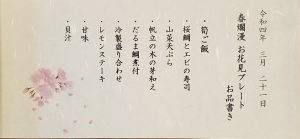 令和四年　三月　二十一日
春爛漫　お花見プレート
お品書き
・筍ご飯
・桜鯛とエビの寿司
・山菜天ぷら
・帆立の木の芽和え
・だるま鯛煮付
・冷製盛り合わせ
・レモンステーキ
・甘味
・貝汁